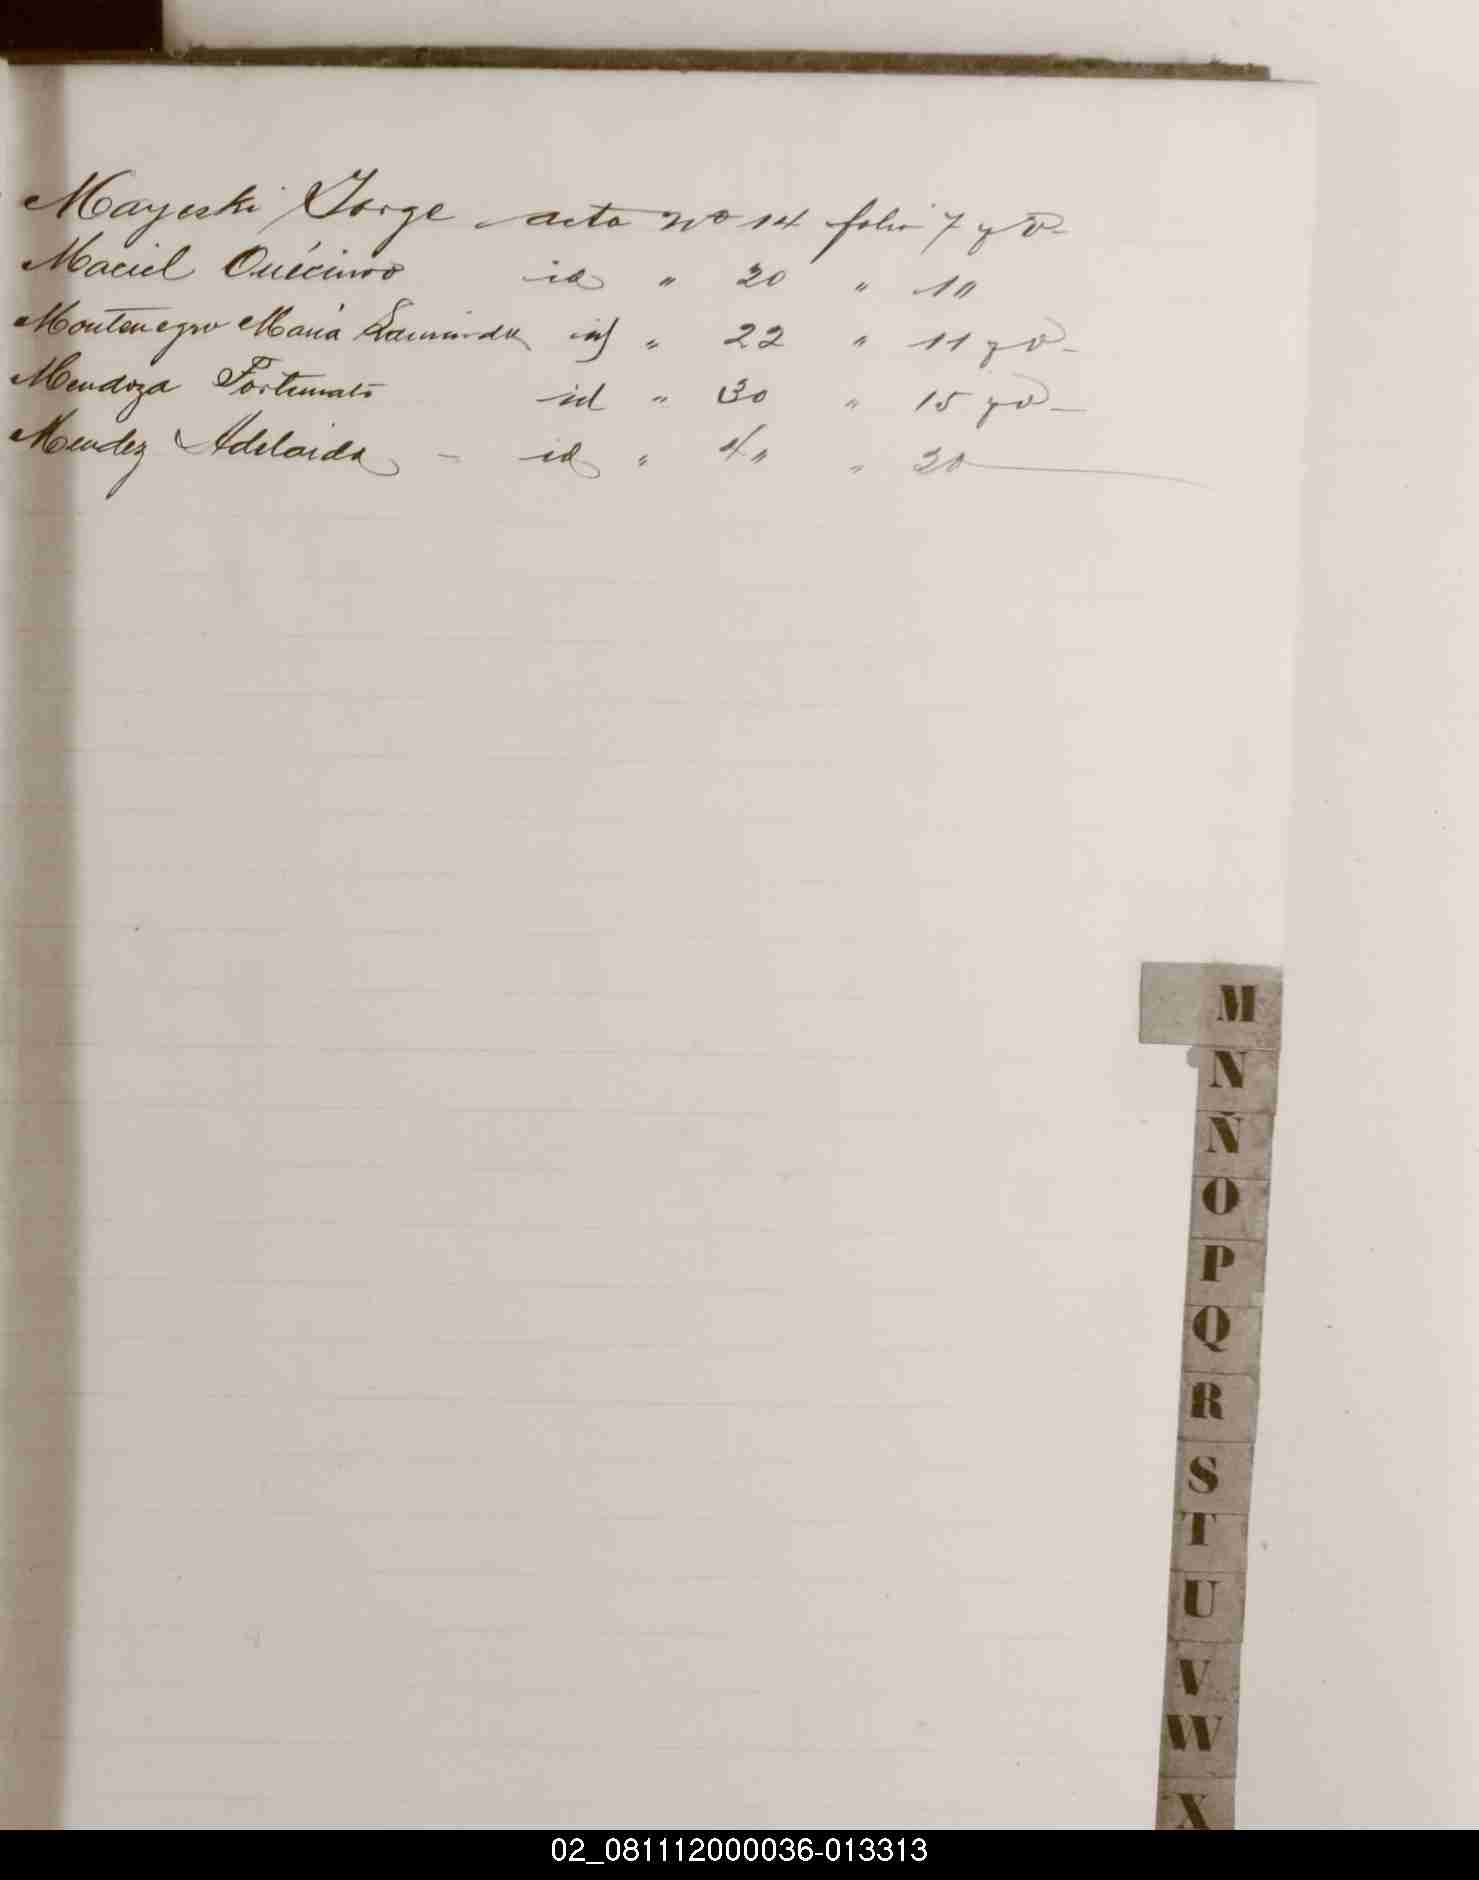 Mayeski Jorge acta Nº 14 folio 7 y vº
Maciel id " 20 " 10
Montenegro Maria id " 22 " 11 y vº
Mendoza Fortunato id " 30 " 15 y vº
Mendez Adelaida - id " 40 " 20
M
N
Ñ
O
P
Q
R
S
T
U
V
W
X
02_081112000036-013313